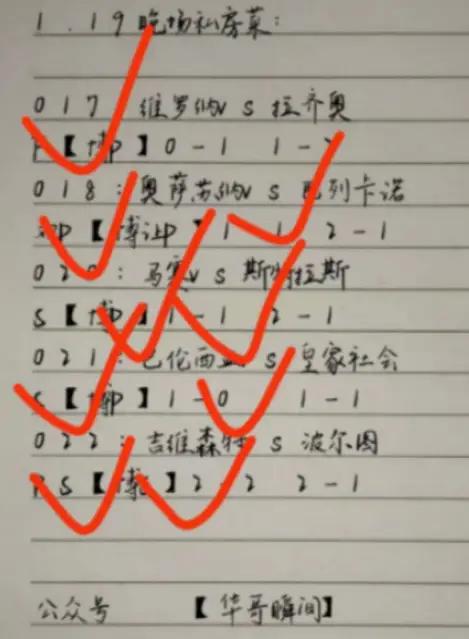 1.19晚场私房菜:
017 维罗纳vs拉齐奥
【博p】0-1 1-
018:奥萨苏纳vs 列卡诺
【博让p】1 1 2-1
02 :马赛vs斯特拉斯
s【博 】1-1 2-1
021:巴伦西亚 s皇家社会
s【博p】1-0 1-1
022:吉维森特 s 波尔图
s【博 】2-2 2-1
公众号 【华哥瞬间】